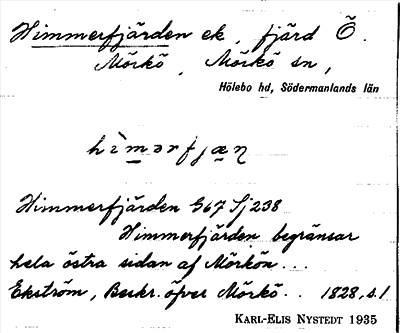 Himmerfjärden ek. fjärd Ö.
Mörkö, Mörkö sn,
Hölebo hd, Södermanlands län
hìmərfjæɳ
Himmerfjärden G67 Sj238
Himmerfjärden begränsar
hela östra sidan af Mörkön...
Ekström, Beskr. öfver Mörkö.. 1828, s.1
KARL-ELIS NYSTEDT 1935